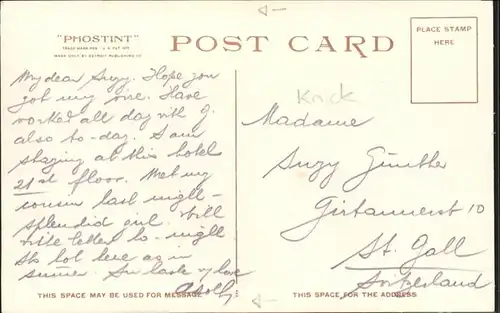 "PHOSTINT"
TRADE MARK REG. U.S. PAT. OFF.
MADE ONLY BY DETROIT PUBLISHING CO.
POST CARD
PLACE STAMP
HERE
My dear Suzy. Hope you
got my wire. Have
worked all day with J.
also to-day. I am
staying at this hotel
21st floor. Met my
cousin last night –
splendid girl. Will
write letter to-night
It's hot here as in
summer. In haste my love
Adolf
Knick
Madame
Suzy Günther
Girtannerst 10
St. Gall
Switzerland
THIS SPACE MAY BE USED FOR MESSAGE
THIS SPACE IS FOR THE ADDRESS